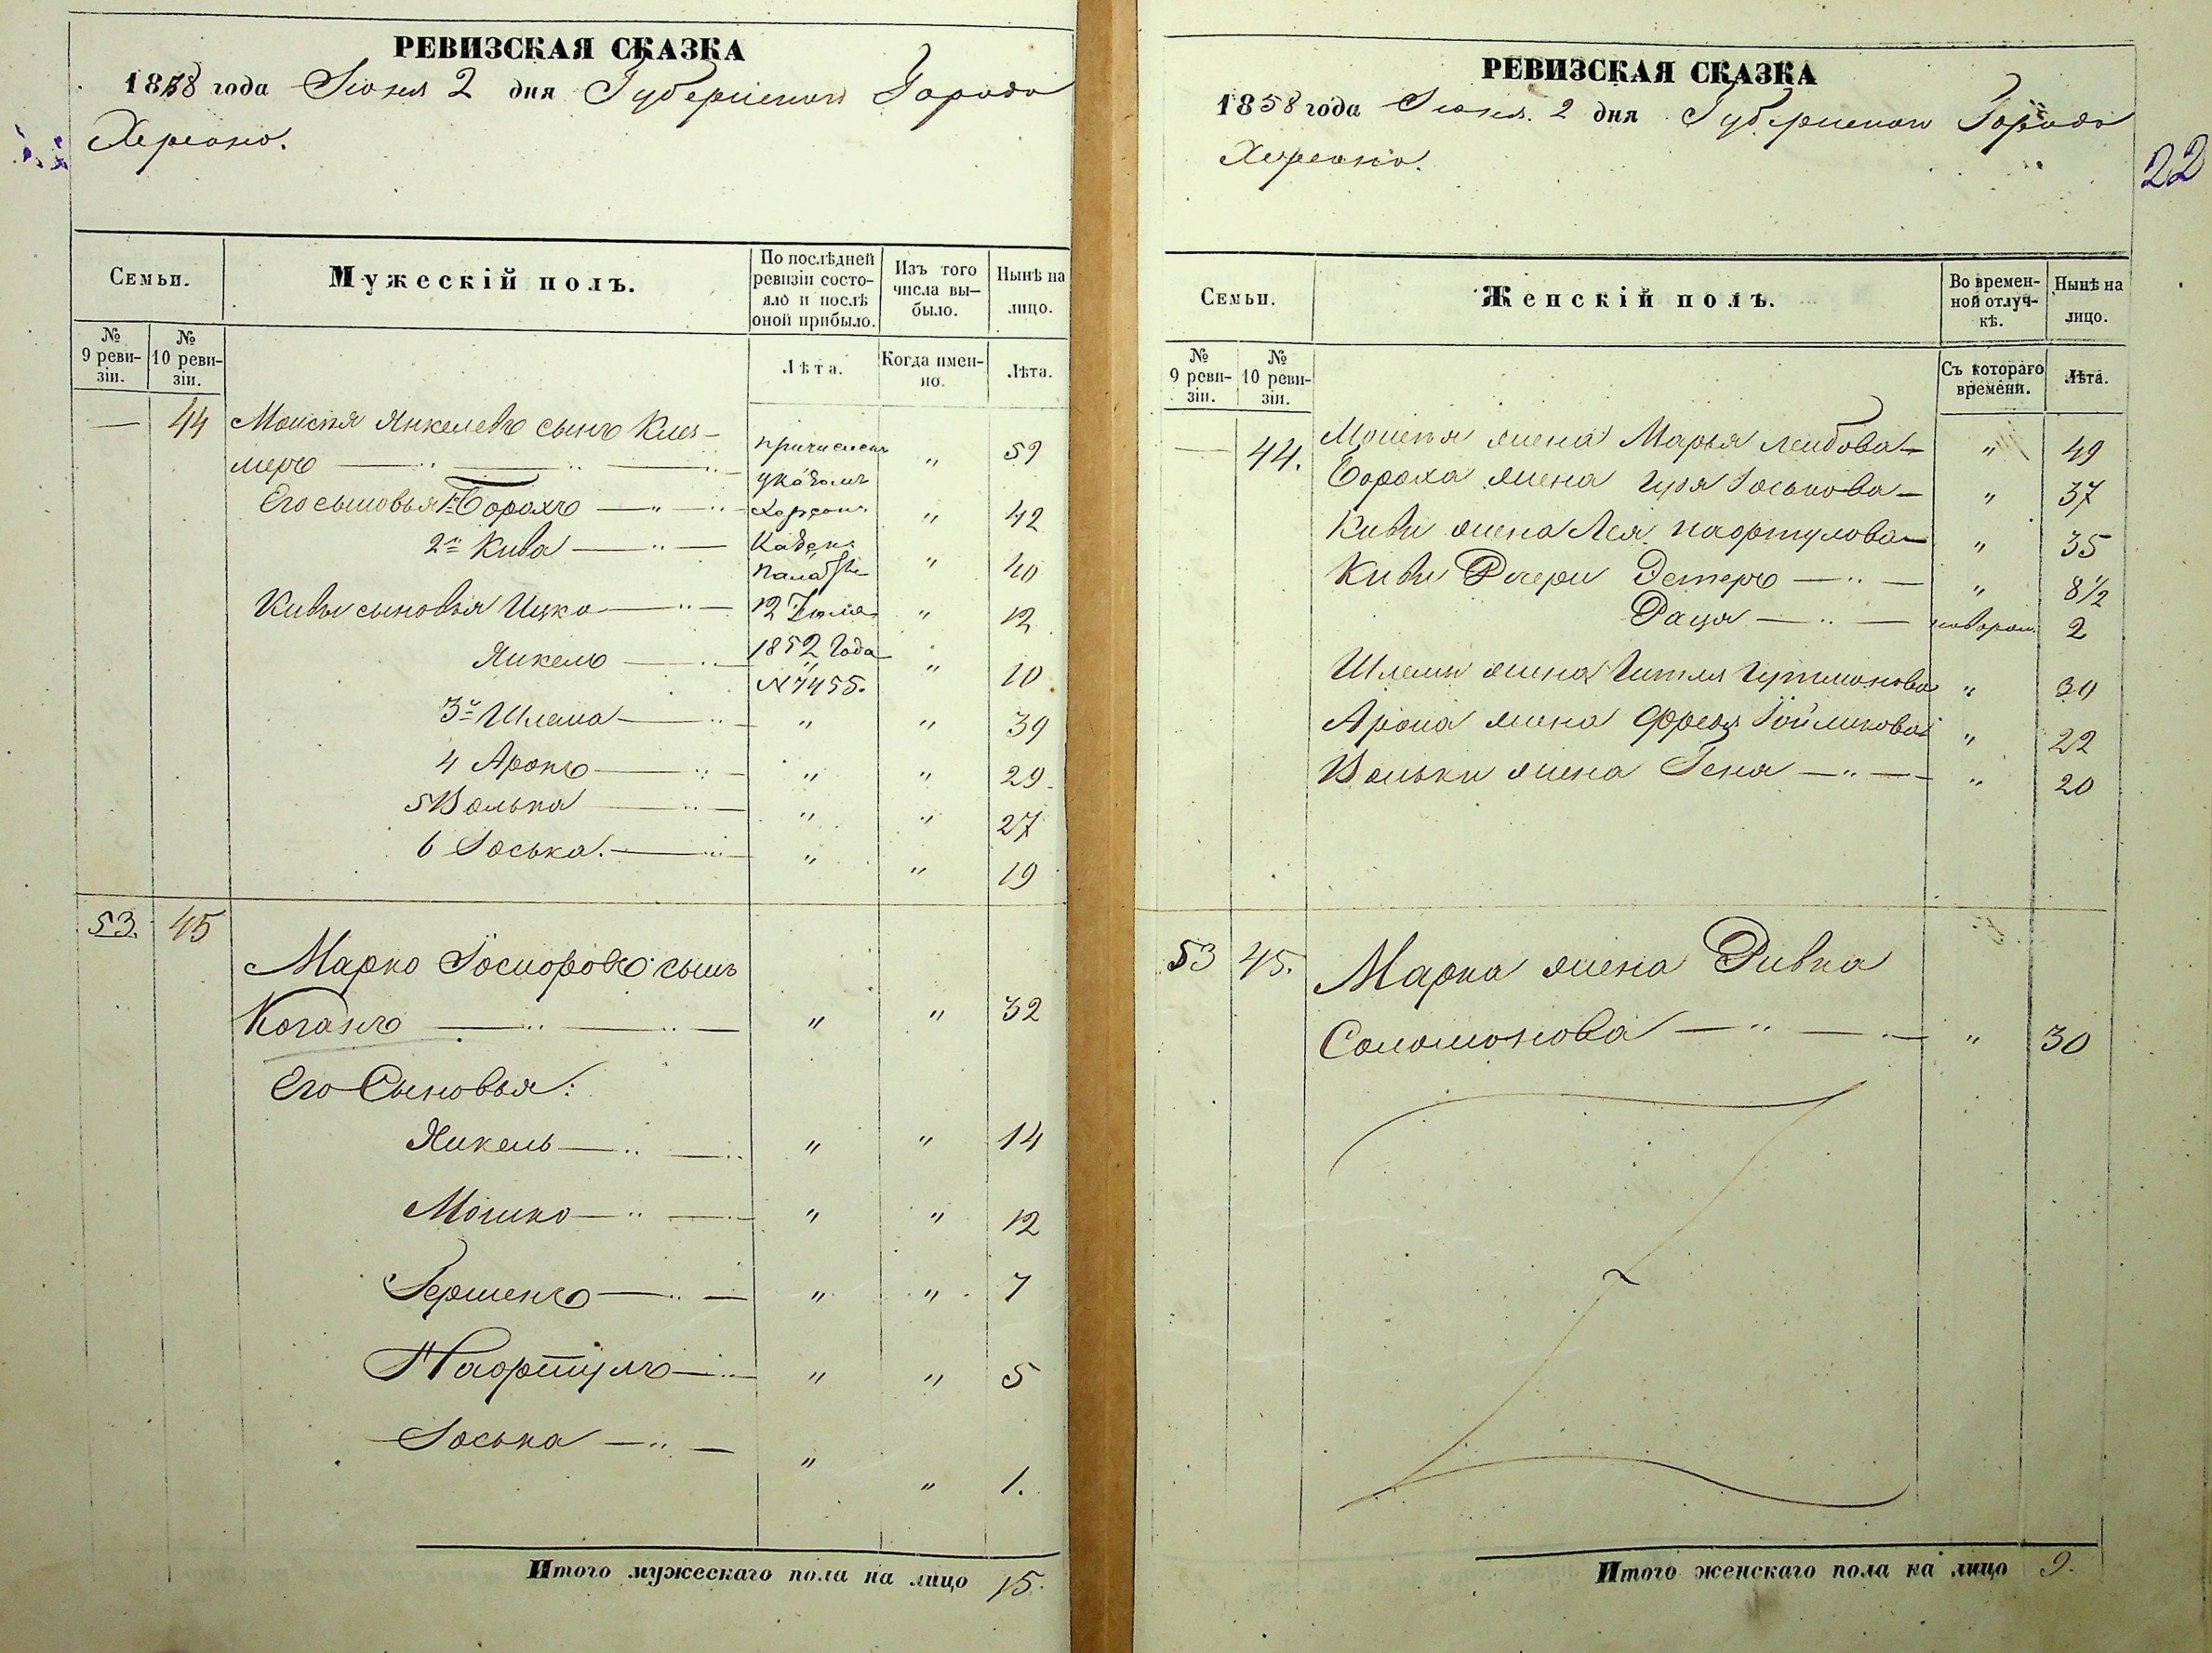 РЕВИЗСКАЯ СКАЗКА
1858 года Іюня 2 дня Губернскаго Города
Херсона.
Семьи.
Мужескій полъ.
По послѣдней ревизіи состояло и послѣ оной прибыло.
Изъ того числа выбыло.
Нынѣ на лицо.
№ 9 ревизіи.
№ 10 ревизіи.
Лѣта.
Когда именно.
Лѣта.
— 44 Моисея Янкелевъ сынъ Киз-
меръ — причисленъ указомъ " 59
Его сыновья 1й Борахъ — Херсон. " 42
2й Кива — Казен. Палаты " 40
Кивы сыновья Ицко — 12 Іюля " 12
Янкель — 1852 Года № 7455. " 10
3й Шлема — " " 39
4 Аронъ — " " 29
5 Волька — " " 27
6 Іоська. — " " 19
53. 45
Марко Іосиоровъ сынъ
Коганъ — " " 32
Его Сыновья:
Янкель — " " 14
Мошко — " " 12
Гершенъ — " " 7
Нафтулъ — " " 5
Іоська — " " 1.
Итого мужескаго пола на лицо 15.
РЕВИЗСКАЯ СКАЗКА
1858 года Іюня. 2 дня Губернскаго Города
Херсона.
22
Семьи.
Женскій полъ.
Во временной отлучкѣ.
Нынѣ на лицо.
№ 9 ревизіи.
№ 10 ревизіи.
Съ котораго времени.
Лѣта.
— 44. Моисея жена Марья Лейбова — " 49
Бораха жена Іоськова — " 37
Кивы жена Лея Нафтулова — " 35
Кивы Дочери Эстеръ — " 8 1/2
Рася — 2
Шлемы жена Гитля Гутмонова " 30
Арона жена Фрейда " 22
Вольки жена Геня — " 20
53 45. Марка жена Ривка
Соломонова — " 30
Итого женскаго пола на лицо 9.